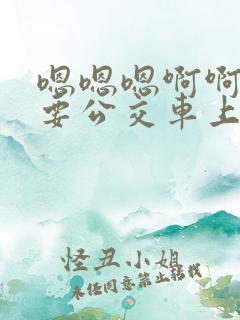 嗯嗯嗯啊啊
要公交車上
怪丑小姐
未任同意禁止转载